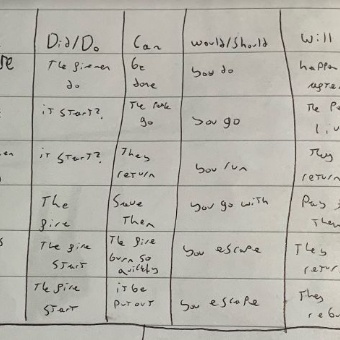 Did/Do Can Would/Should Will
The firemen be you do happen
do done after
it START? The people you go The Pe
go Li
it START? They you run They
return return
The Save you go with Pay
fire Them The
The fire The fire you escape They
START burn so retur
quickly
The fire it be you escape They
START put out rebu